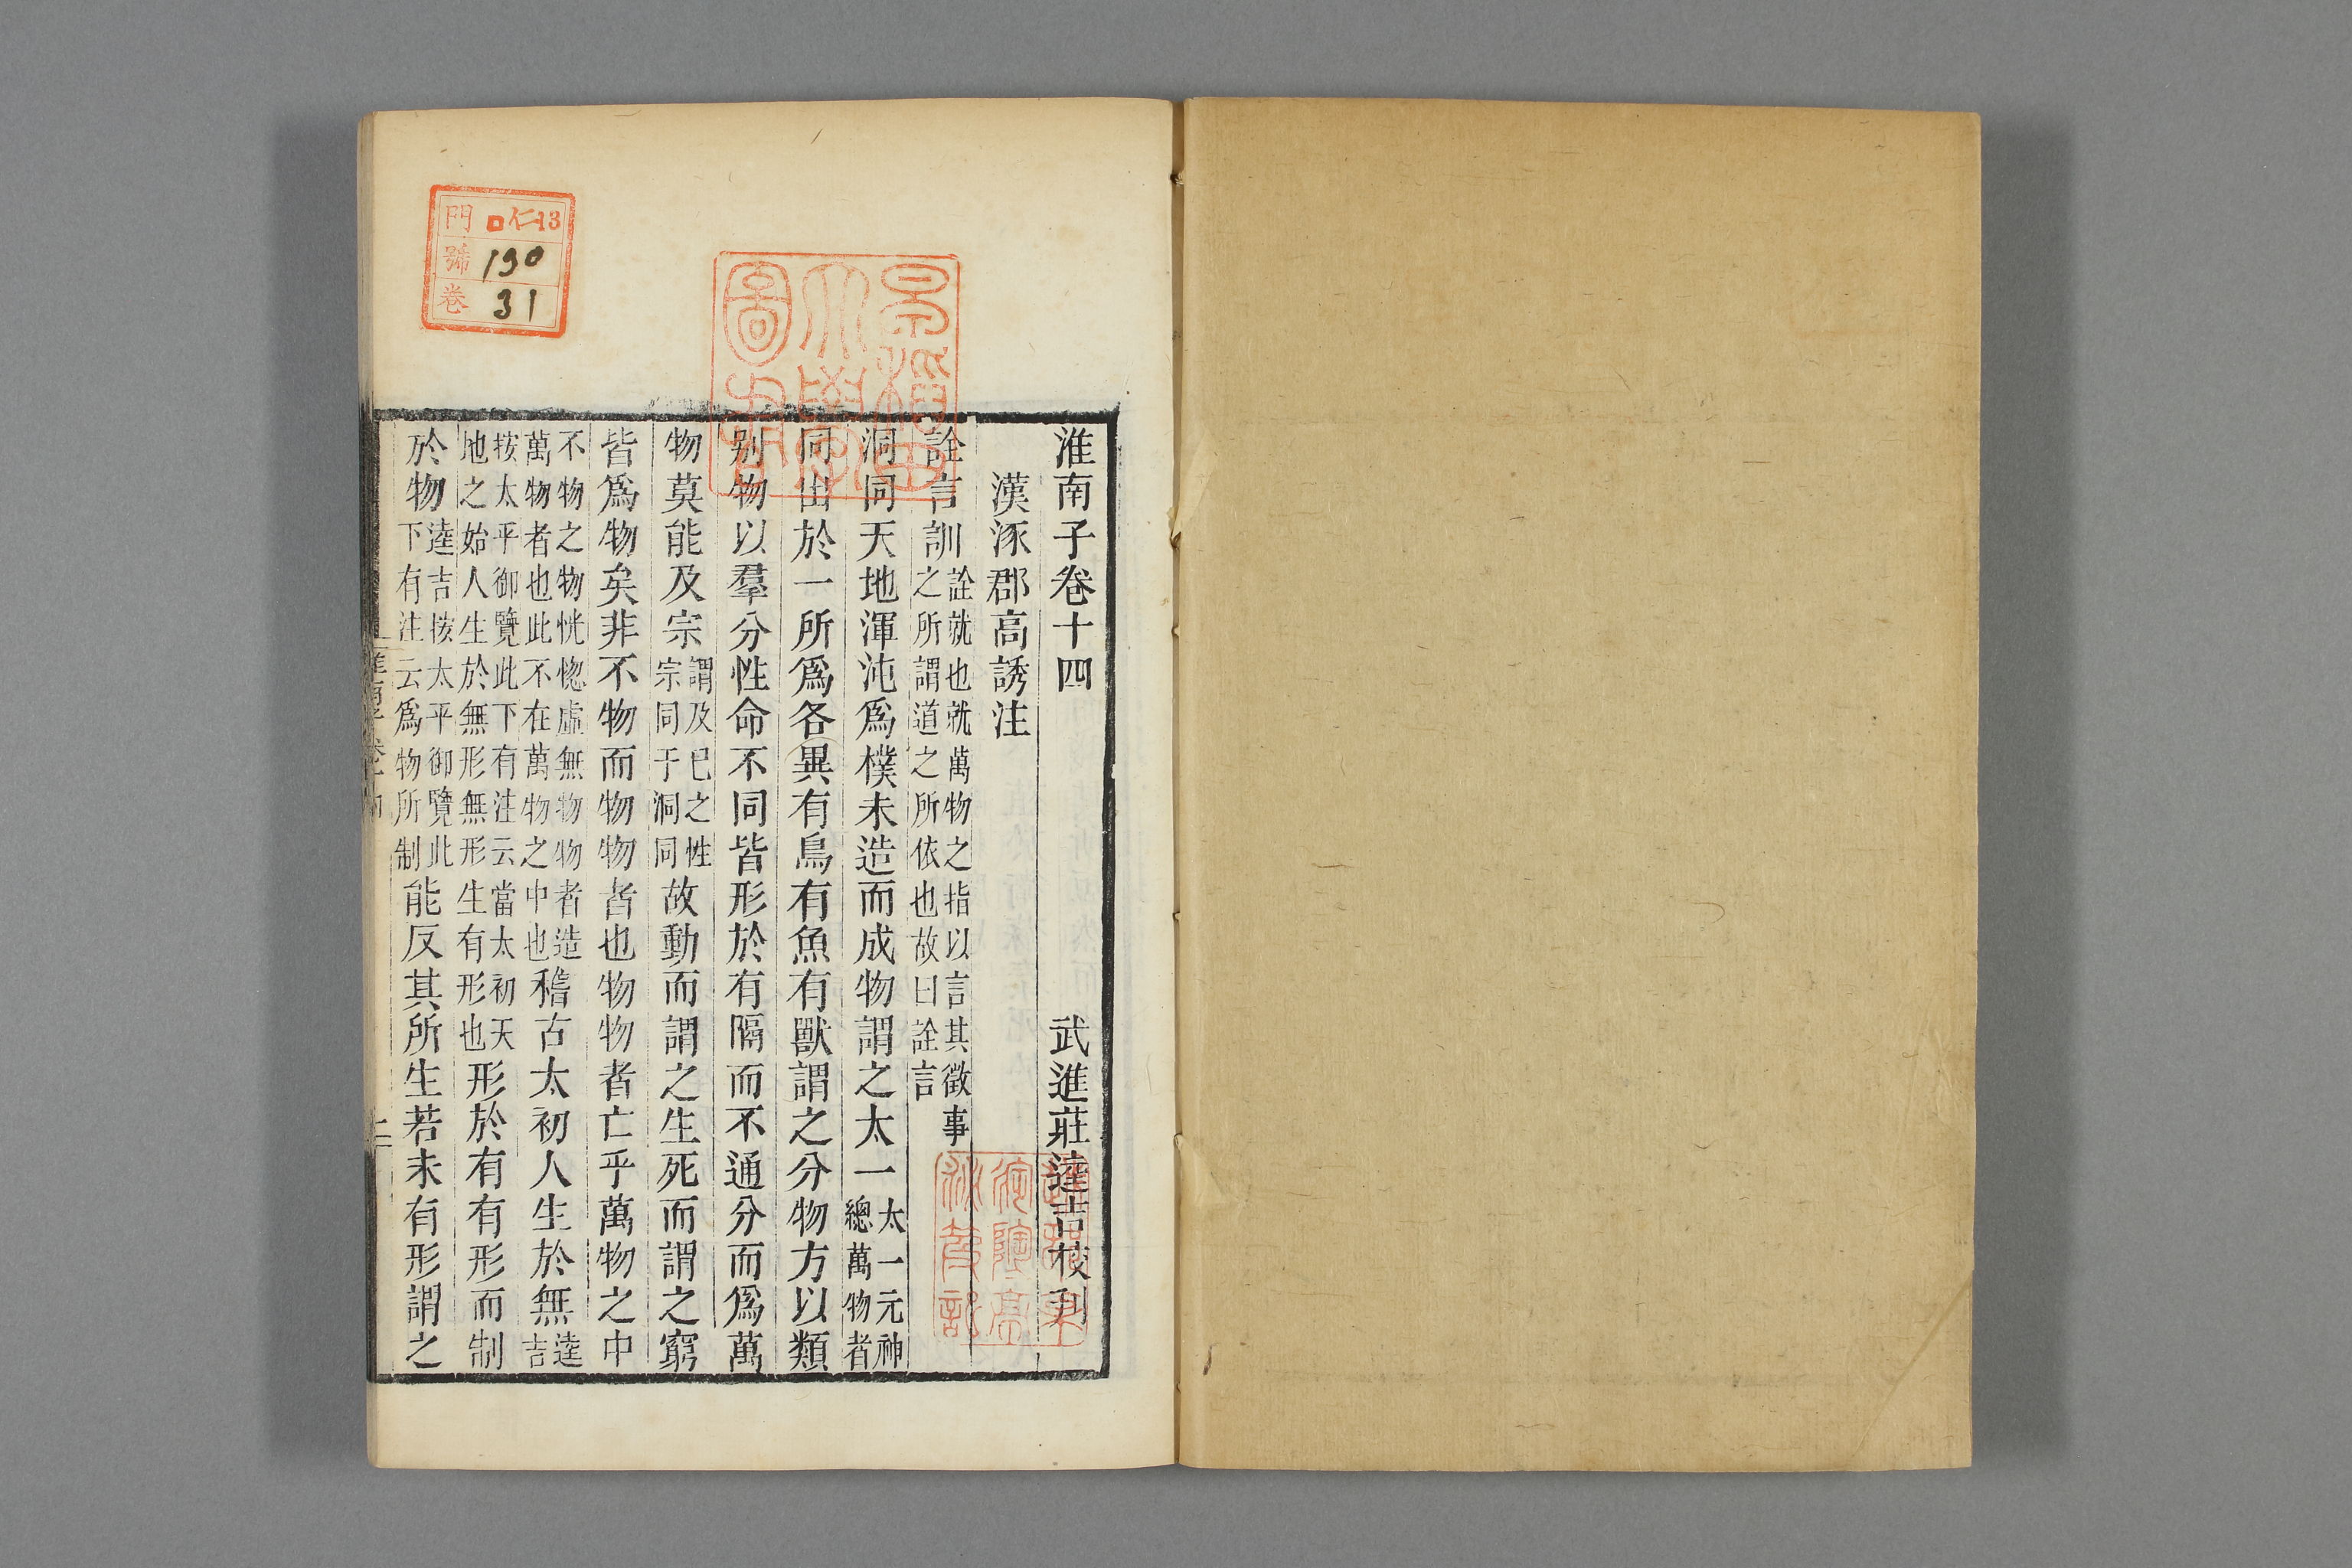 淮南子卷十四
武進莊逵吉校刊
漢涿郡高誘注
詮言訓詮就也就萬物之指以言其徵事之所謂道之所依也故曰詮言
洞同天地渾沌爲樸未造而成物謂之太一太一元神總萬物者
同出於一所爲各異有鳥有魚有獸謂之分物方以類
别物以羣分性命不同皆形於有隔而不通分而爲萬
物莫能及宗謂及己之性宗同于洞同故動而謂之生死而謂之窮
皆爲物矣非不物而物物者也物物者亡乎萬物之中
不物之物恍惚虛無物物者造萬物者也此不在萬物之中也稽古太初人生於無逵吉
按太平御覽此下有注云當太初天地之始人生於無形無形生有形也形於有有形而制
於物逵吉按太平御覽此下有注云爲物所制能反其所生若未有形謂之
門 口仁13
號 190
卷 31